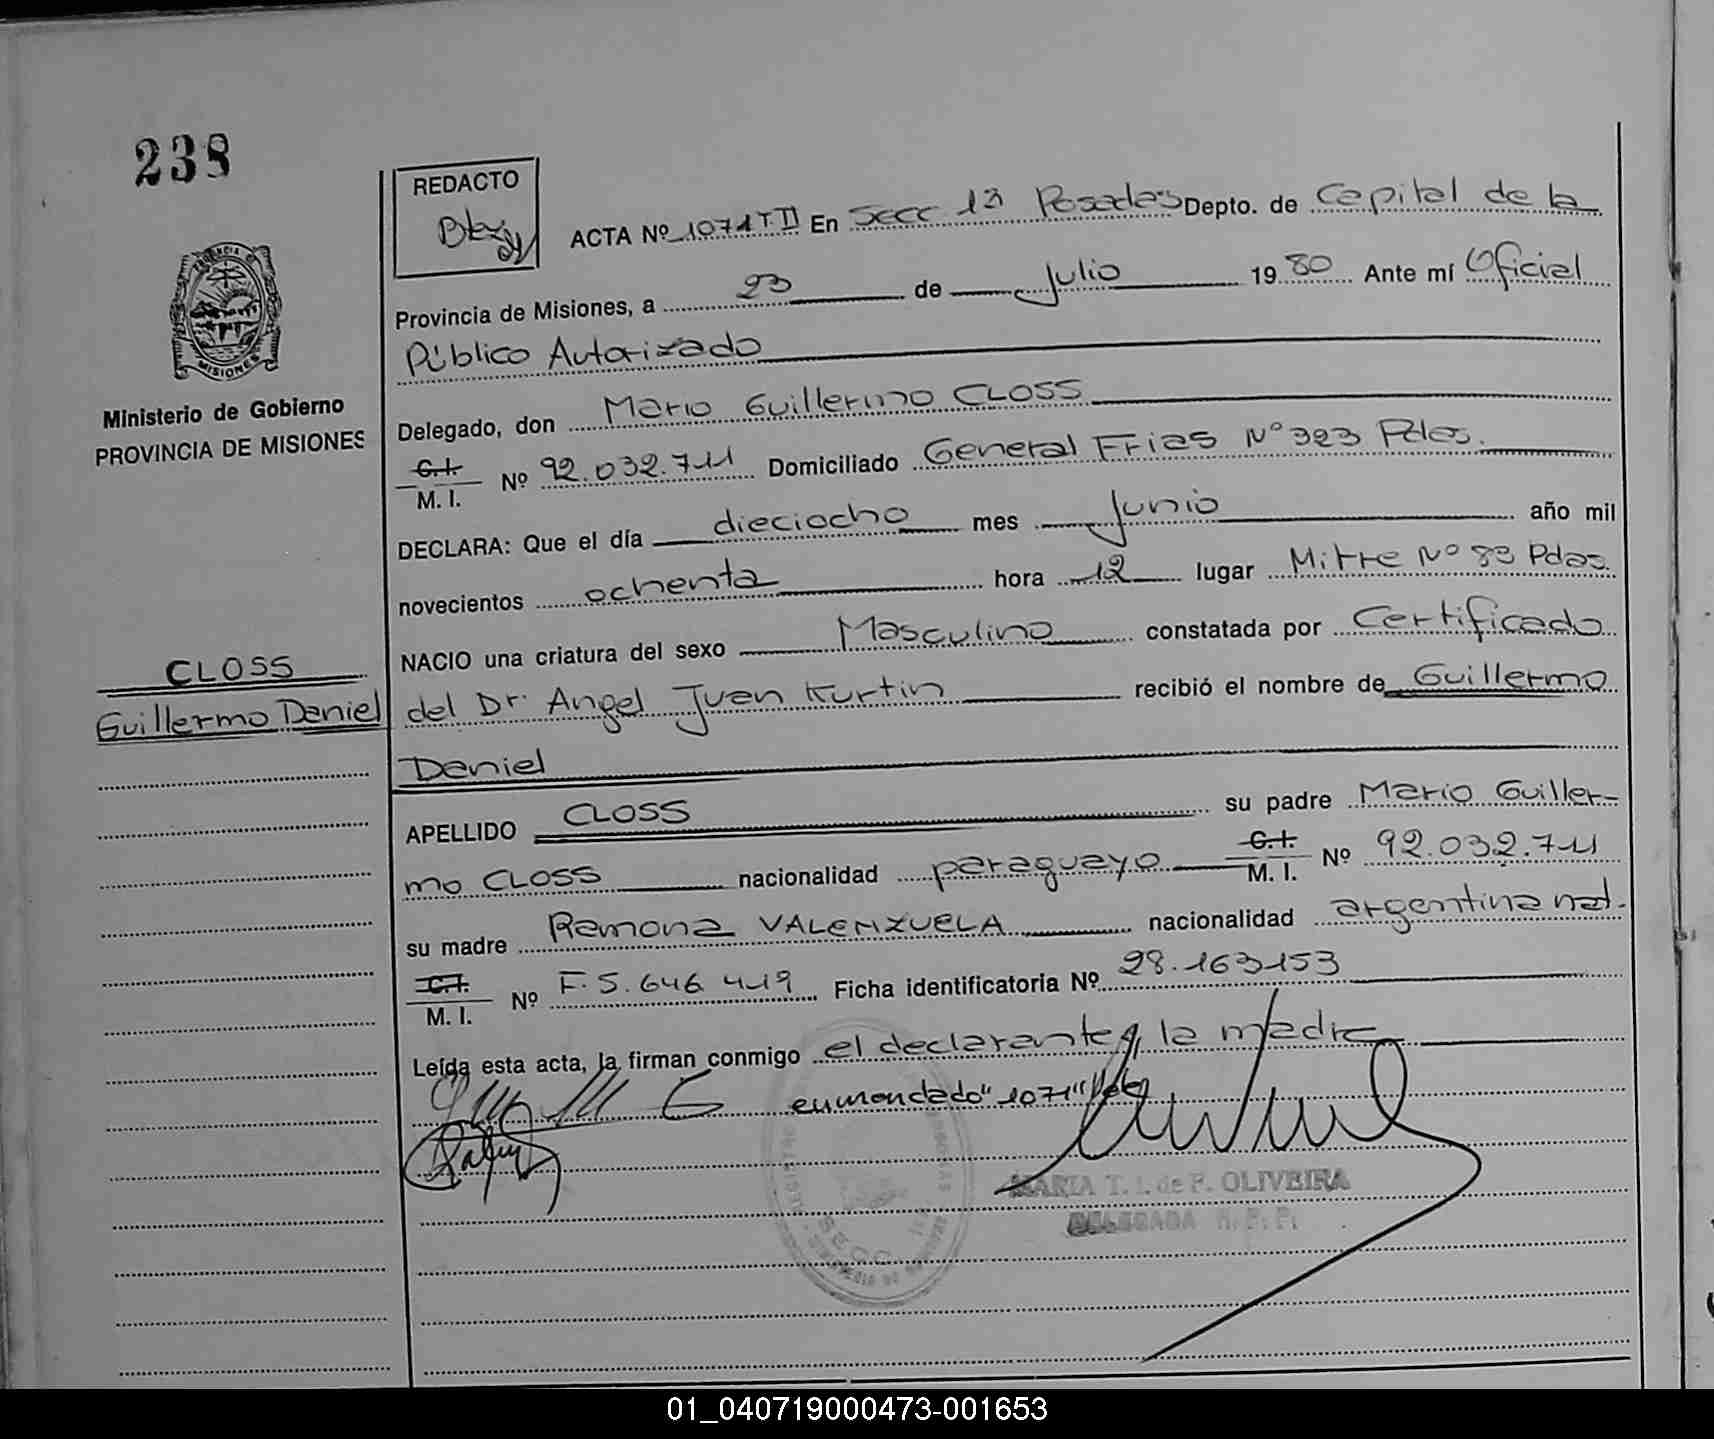 238
REDACTO
ACTA Nº 1071 T II En Secc 1ª Posadas Depto. de Capital de la
Provincia de Misiones, a 23 de Julio 1980 Ante mí Oficial
Público Autorizado
Delegado, don Mario Guillermo CLOSS
C.I.
M. I. Nº 92.032.711 Domiciliado General Frias Nº 323 Pdas.
DECLARA: Que el día dieciocho mes Junio año mil
novecientos ochenta hora 12 lugar Mitre Nº 83 Pdas.
NACIO una criatura del sexo Masculino constatada por Certificado
del Dr. Angel Juan Kurtin recibió el nombre de Guillermo
Daniel
APELLIDO CLOSS su padre Mario Guiller-
mo CLOSS nacionalidad paraguayo C.I. M. I. Nº 92.032.711
su madre Ramona VALENZUELA nacionalidad argentina nat.
C.I.
M. I. Nº F.5.646 419 Ficha identificatoria Nº 28.163153
Leída esta acta, la firman conmigo el declarante y la madre
enmendado "1071" Vale
MARIA T. I. de F. OLIVEIRA
DELEGADA R. P. P.
PROVINCIA DE
MISIONES
Ministerio de Gobierno
PROVINCIA DE MISIONES
CLOSS
Guillermo Daniel
01_040719000473-001653